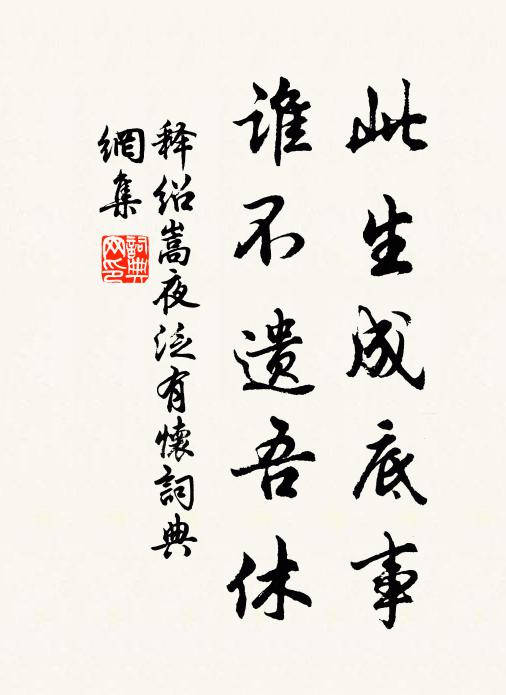 此生成底事
谁不遗吾休
释绍嵩夜泛有懷詞典
網集
詞典网印